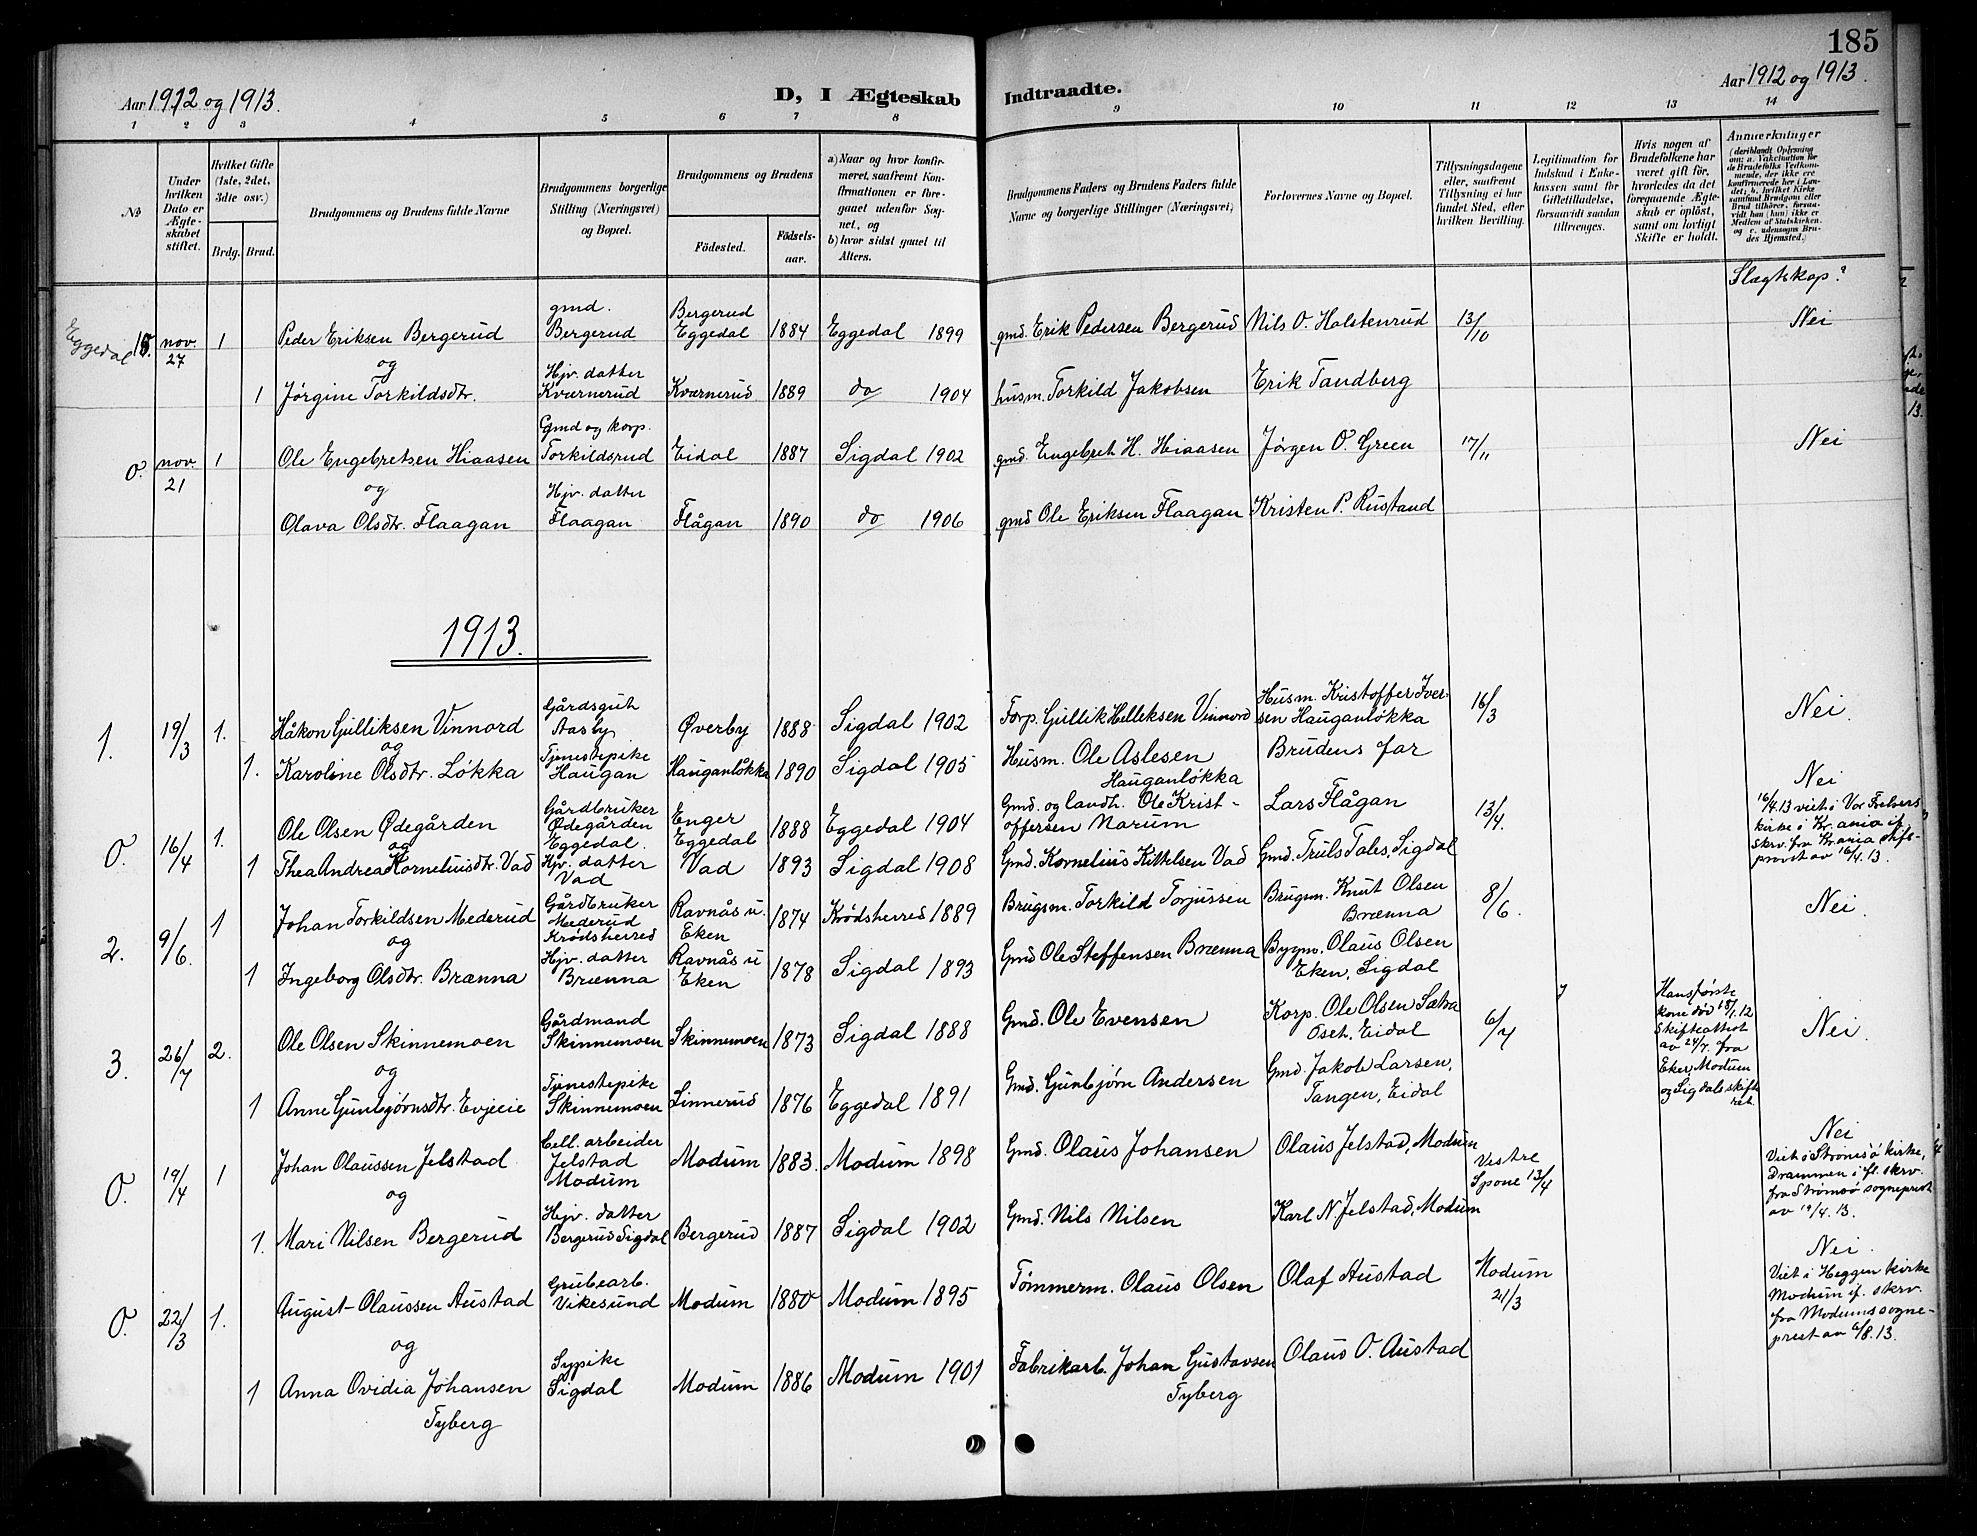 185
Aar 1912 og 1913.
D, I Ægteskab Indtraadte.
Aar 1912 og 1913.
1 2 3 4 5 6 7 8 9 10 11 12 13 14
No
Under hvilken Dato er Ægteskabet stiftet.
Hvilket Gifte (1ste, 2det, 3die osv.)
Brdg. Brud.
Brudgommens og Brudens fulde Navne
Brudgommens borgerlige Stilling (Næringsvei) og Bopæl.
Brudgommens og Brudens
Födested.
Födsels-aar.
a) Naar og hvor konfirmeret, saafremt Konfirmationen er foregaaet udenfor Sognet, og
b) hvor sidst gaaet til Alters.
Brudgommens Faders og Brudens Faders fulde Navne og borgerlige Stillinger (Næringsvei)
Forlovernes Navne og Bopæl.
Tillysningsdagene eller, saafremt Tillysning ei har fundet Sted, efter hvilken Bevilling.
Legitimation for Indskud i Enkekassen samt for Giftetilladelse, forsaavidt saadan tiltrænges.
Hvis nogen af Brudefolkene har været gift før, hvorledes da det foregaaende Ægteskab er oplöst, samt om lovligt Skifte er holdt.
Anmærkninger
(deriblandt Oplysning om: a. Vakcination for de Brudefolks Vedkommende, der ikke ere konfirmerede her i Landet; b. hvilket Kirkesamfund Brudgom eller Brud tilhører, forsaavidt han (hun) ikke er Medlem af Statskirken, og c. udensogns Brudes Hjemsted.)
Slægtskap?
Eggedal 15. nov 27 1 Peder Eriksen Bergerud gmd. Bergerud Bergerud Eggedal 1884 Eggedal 1899 gmd. Erik Pedersen Bergerud Nils O. Holstenrud 13/10 Nei
og
1 Jørgine Torkildsdtr. Hjv. datter Kværnerud Kværnerud 1889 do 1904 husm. Torkild Jakobsen Erik Tandberg
O. nov 21 1 Ole Engebretsen Hiaasen Gmd og korp. Torkildsrud Eidal 1887 Sigdal 1902 gmd. Engebret H. Hiaasen Jørgen O. Green 17/11 Nei
og
Olava Olsdtr. Flaagan Hjv. datter Flaagan Flågan 1890 do 1906 gmd Ole Eriksen Flaagan Kristen P. Rustand
1913.
1. 19/3 1. Håkon Gulliksen Vinnord Gårdsgut Aasby Øverby 1888 Sigdal 1902 Forp. Gullik Helleksen Vinnord Husm. Kristoffer Iversen Hauganløkka 16/3 Nei.
og
1. Karoline Olsdtr. Løkka Tjenestepike Haugan Hauganløkka 1890 Sigdal 1905 Husm. Ole Aslesen Hauganløkka Brudens far
O. 16/4 1. Ole Olsen Ødegården Gårdbruker Ødegården Eggedal. Enger Eggedal 1888 Eggedal 1904 Gmd. og landh. Ole Kristoffersen Narum Lars Flågan 13/4. Nei
16/4.13 viet i Vor Frelsers kirke i Kr.ania if. skrv. fra Kr.ania stifsprovst av 16/4.13.
og
1 Thea Andrea Kornelius dtr. Vad Hjv. datter Vad Vad 1893 Sigdal 1908 Gmd. Kornelius Kittelsen Vad Gmd. Truls Tales, Sigdal
2. 9/6. 1 Johan Torkildsen Mederud Gårdbruker Mederud Krødsherred Ravnås u. Eken 1874 Krødsherred 1889 Brugsm. Torkild Torjussen Brugsm. Knut Olsen Brænna 8/6. Nei.
og
1 Ingeborg Olsdtr. Brænna Hjv. datter Brænna Ravnås u Eken 1878 Sigdal 1893 Gmd Ole Steffensen Brænna Bygm. Olaus Olsen Eken, Sigdal
3. 26/7 2. Ole Olsen Skinnemoen Gårdmand Skinnemoen Skinnemoen 1873 Sigdal 1888 Gmd. Ole Evensen Korp. Ole Olsen Sætra Oset, Eidal 6/7
Hans første kone død 18/1.12 Skifteattest av 24/7. fra Eker, Modum og Sigdals skifteret. Nei.
og
1 Anne Gunbjørnsdtr. Evjeie Tjenestepike Skinnemoen Linnerud 1876 Eggedal 1891 Gmd. Gunbjørn Andersen Gmd. Jakob Larsen, Tangen, Eidal
O. 19/4 1 Johan Olaussen Jelstad Cell. arbeider Jelstad Modum Modum 1883. Modum 1898 Gmd. Olaus Johansen Olaus Jelstad, Modum Vestre Spone 13/4 Nei
Viet i Strømsø kirke, Drammen i fl. skrv. fra Strømsø sogneprest av 19/4.13.
og
1. Mari Nilsen Bergerud Hjv. datter Bergerud Sigdal Bergerud 1887 Sigdal 1902 Gmd. Nils Nilsen Karl N. Jelstad, Modum
O. 22/3 1. August Olaussen Austad Grubearb. Vikesund Modum 1880 Modum 1895 Tømmerm. Olaus Olsen Olaf Austad Modum 21/3 Nei.
Viet i Heggen kirke Modum if. skrv. fra Modums sogneprest av 6/8.13.
og
1 Anna Ovidia Johansen Tyberg Sypike Sigdal Modum 1886 Modum 1901 Fabrikarb. Johan Gustavsen Tyberg Olaus O. Austad